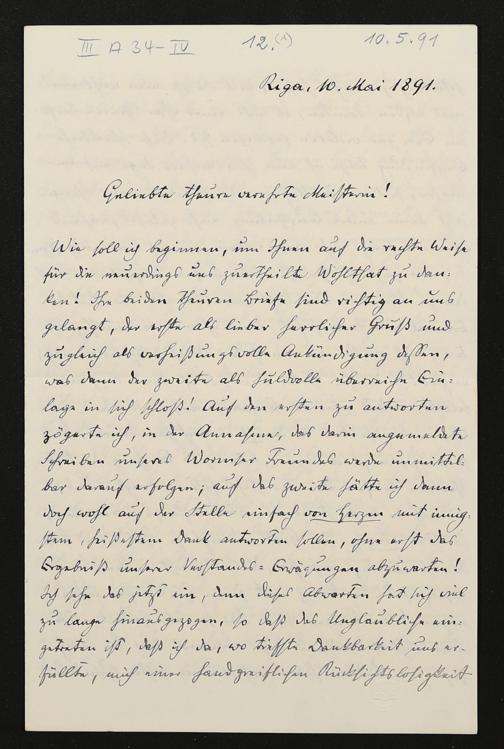 III A 34-IV 12.(1) 10.5.91
Riga, 10. Mai 1891.
Geliebte theure verehrte Meisterin!
Wie soll ich beginnen, um Ihnen auf die rechte Weise
für die neuerdings uns zuertheilte Wohlthat zu dan-
ken! Ihre beiden theuren Briefe sind richtig an uns
gelangt, der erste als lieber herrlicher Gruß und
zugleich als verheißungsvolle Ankündigung dessen,
was dann der zweite als huldvolle überreiche Ein-
lage in sich schloß! Auf den ersten zu antworten
zögerte ich, in der Annahme, das darin angemeldete
Schreiben unseres Wormser Freundes werde unmittel-
bar darauf erfolgen; auf das zweite hätte ich dann
doch wohl auf der Stelle einfach von Herzen mit innig-
stem, heißestem Dank antworten sollen, ohne erst das
Ergebniß unserer Verstandes-Erwägungen abzuwarten!
Ich sehe das jetzt ein, denn dieses Abwarten hat sich viel
zu lange hinausgezogen, so daß das Unglaubliche ein-
getreten ist, daß ich da, wo tiefste Dankbarkeit uns er-
füllte, mich einer handgreiflichen Rücksichtslosigkeit